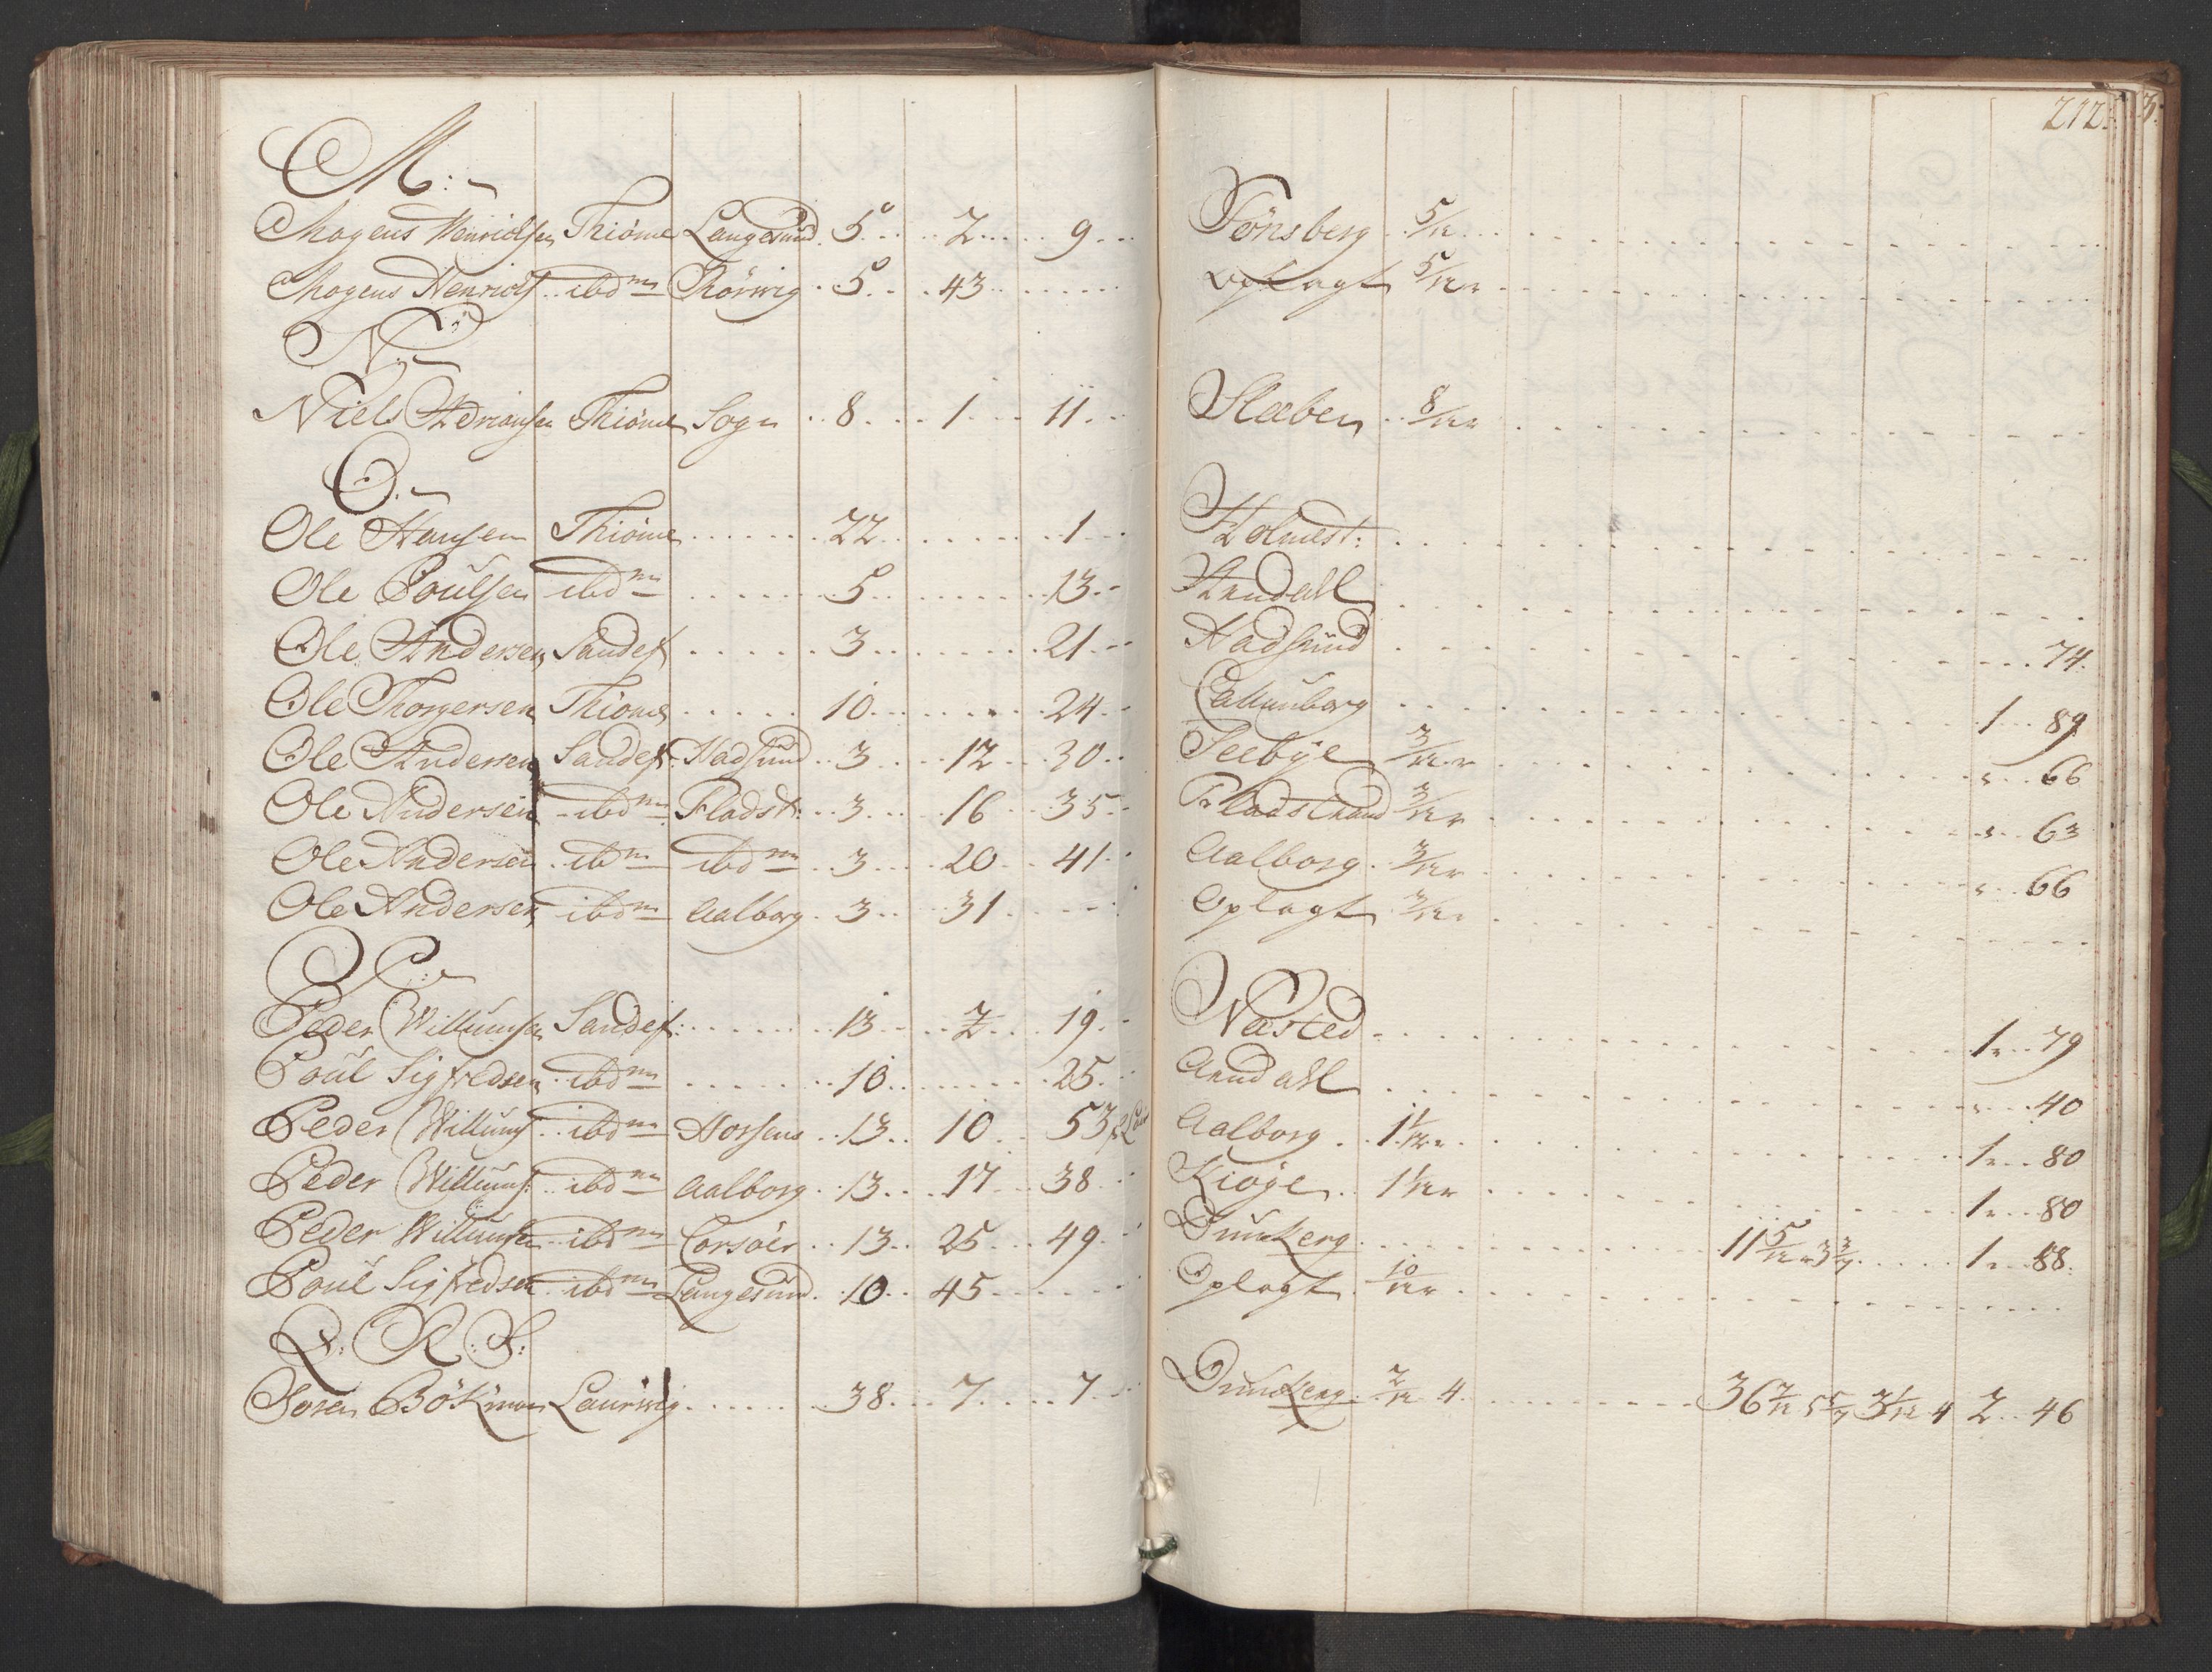 M:
Mogens Henrichsen Thiöme Langesund 5 2 9
Mogens Henrichs ibdm Thörwig 5 43
N:
Niels Adriansen Thiöme Sogn 8 1 11
O.
Ole Hansen Thiöme 22 1
Ole Poulsen ibdm 5 13
Ole Andersen Sandef 3 21
Ole Thorgersen Thiöme 10 24
Ole Andersen Sandef: Hadsund 3 12 30
Ole Andersen ibdm Fladst: 3 16 35
Ole Andersen ibm ibdm 3 20 41
Ole Andersen ibdm Aalborg 3 31
P:
Peder Willumsen Sandef: 13 2 19
Poul Sigfredsen ibdm 10 25
Peder Willums ibdm Horsens 13 10 53
Peder Willums: ibdm Aalborg 13 17 38
Peder Willumsen ibdm Corsöer 13 25 49
Poul Sigfredsen ibdm Langesund 10 45
Q: R: S:
Soren Bökman Laurwig 38 7 7
212.
Tönsberg 5/12
Oplagt 5/12
Sleeben 8/12
Holmest:
Arendall
Hadsund 74
Callunborg 1 89
Seebye 3/12 66
Fladstrand 3/12 63
Aalborg 3/12 66
Oplagt 3/12
Nested 1 79
Arendall 40
Aalborg 1 1/12 1 80
Kiöge 1 1/12 1 80
Dunkerg 11 5/12 3 3/7 1 88
Oplagt 10/12
Dunkerg 2/12 4 36 7/12 5 5/7 3 1/12 4 2 46